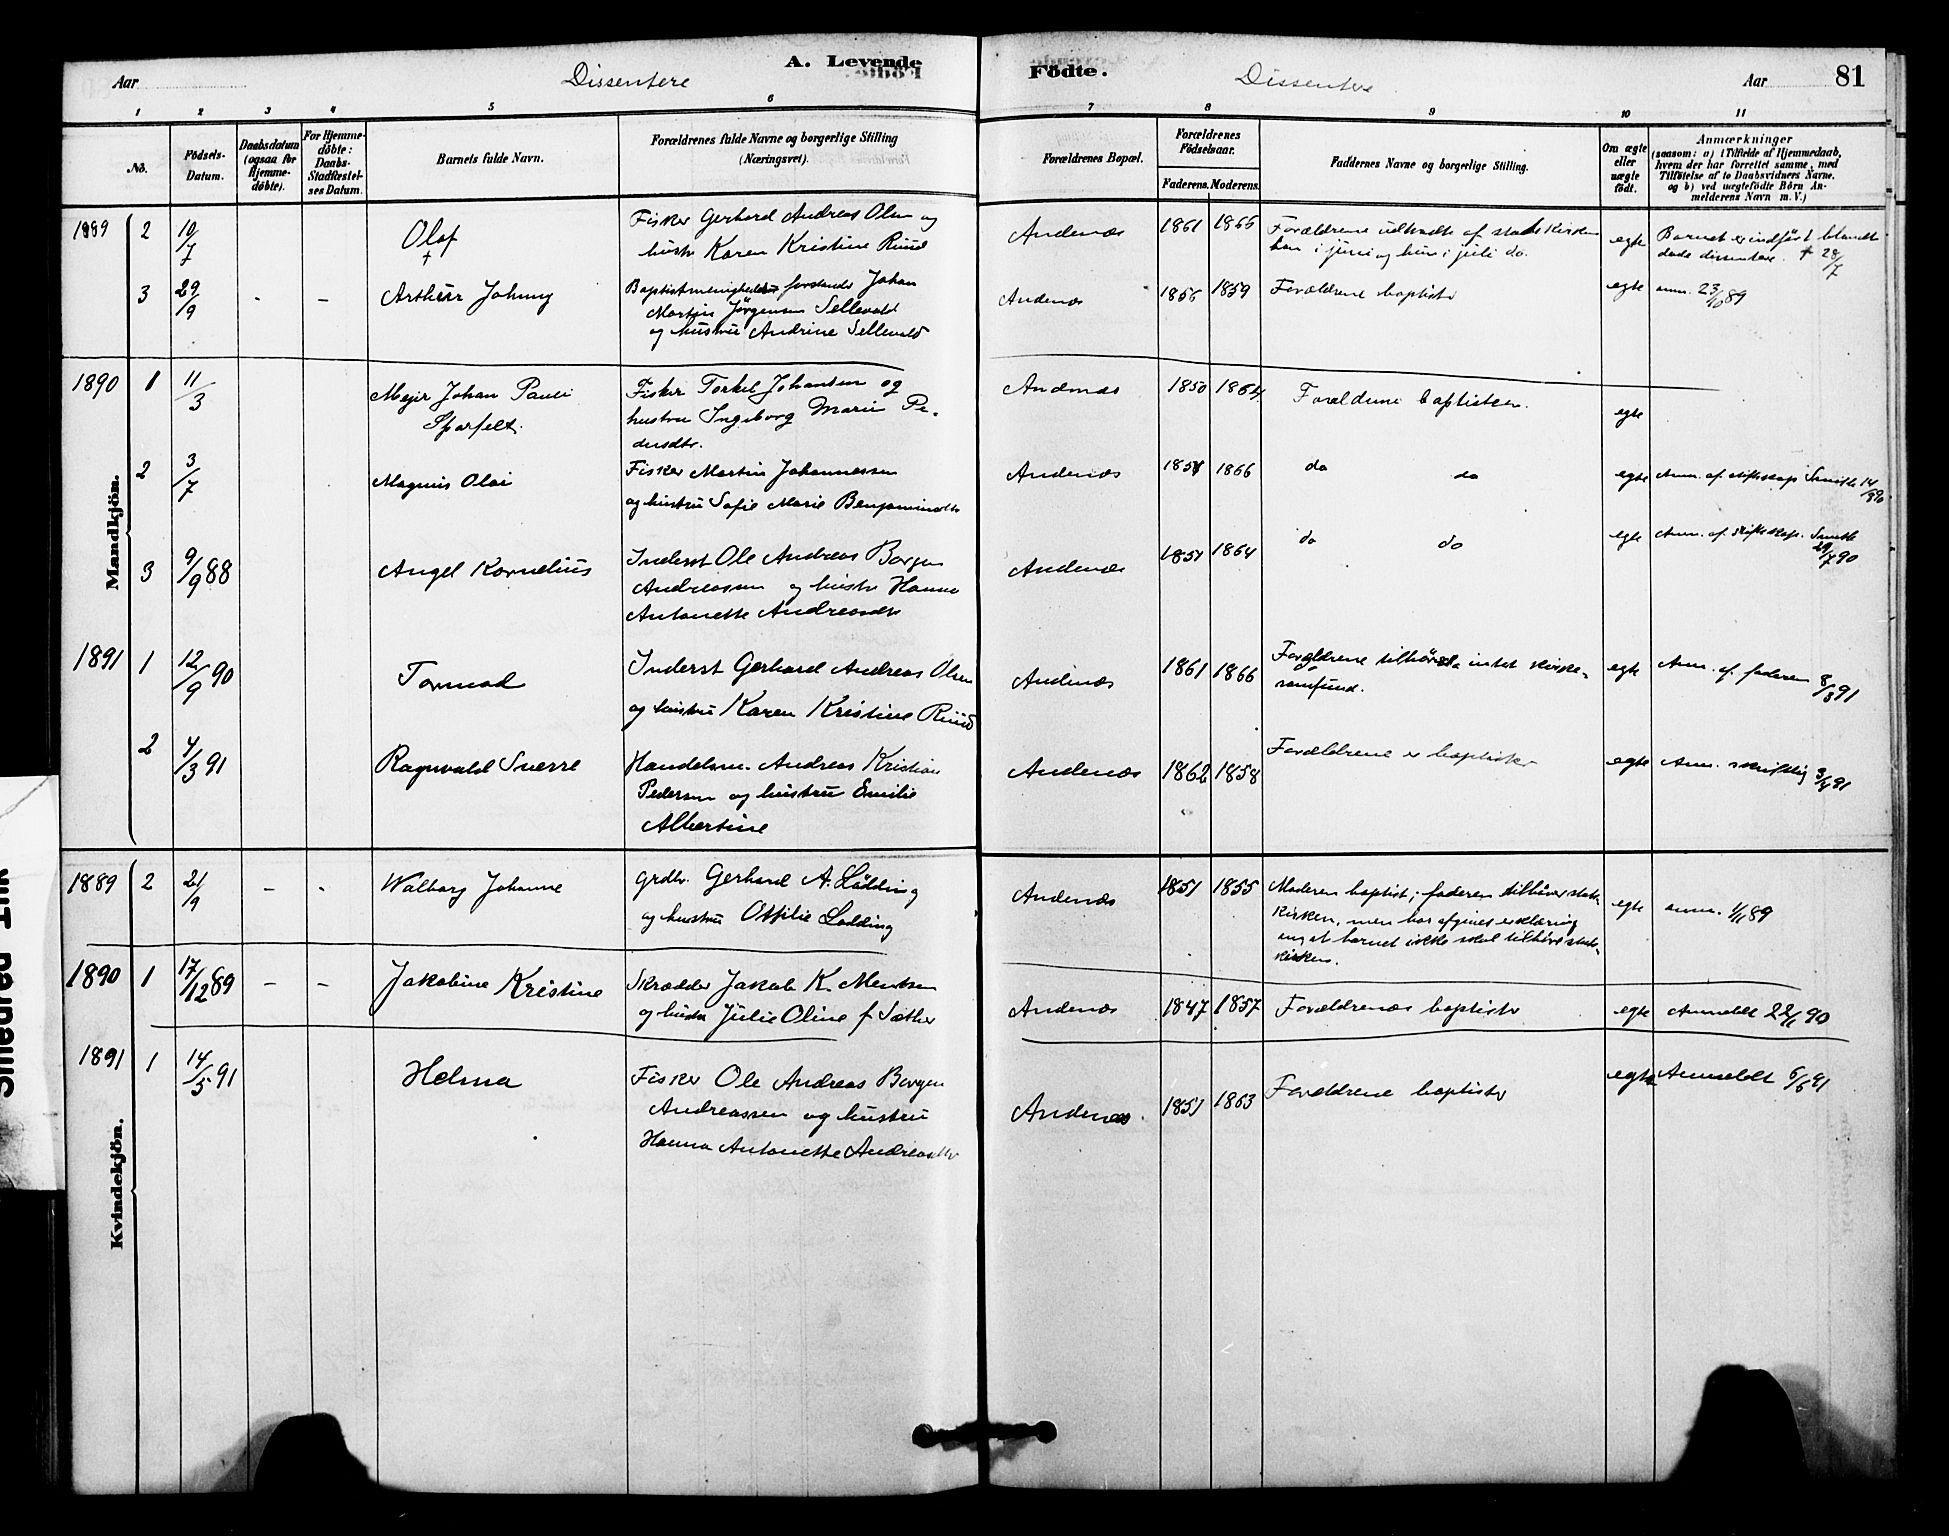 Aar
Dissentere
A. Levende
Födte.
Dissentere
Aar
81
1 2 3 4 5 6 7 8 9 10 11
No.
Födsels-
Datum.
Daabsdatum
(ogsaa for
Hjemme-
döbte).
For Hjemme-
döbte:
Daabs-
Stadfæstel-
ses Datum.
Barnets fulde Navn.
Forældrenes fulde Navne og borgerlige Stilling
(Næringsvei).
Forældrenes Bopæl.
Forældrenes
Födselsaar.
Faderens. Moderens.
Faddernes Navne og borgerlige Stilling.
Om ægte
eller
uægte
födt.
Anmærkninger
(saasom: a) i Tilfælde af Hjemmedaab,
hvem der har forrettet samme, med
Tilföielse af to Daabsvidners Navne.
og b) ved uægtefödte Börn An-
melderens Navn m. V.)
Mandkjön.
1889 2 10/7 Olaf †
Fisker Gerhard Andreas Olsen og
hustr Karen Kristine Ruud
Andenæs 1861 1866
Forældrene udtraadte af statskirken
han i juni og hun i juli do.
egte
Barnet er indført blandt
døde dissentere. † 28/7
3 29/9 - - Arthur Johnny
Baptistmenigheds forstander Johan
Martin Jörgensen Sellevold
og hustru Andrine Sellevold
Andenæs 1856 1859 Forældrene baptister egte anm. 23/10 89
1890 1 11/3 Mejer Johan Pauli
Sparfelt
Fisker Torkel Johansen og
hustru Ingeborg Marie Pe-
dersdtr.
Andenæs 1850 1864 Forældrene baptister. egte
2 3/7 Magnus Olai
Fisker Martin Johannessen
og hustru Sofie Marie Benjaminsdtr
Andenæs 1858 1866 do do egte Anm. af Smith 14/8 90
3 9/9 88 Angel Kornelius
Inderst Ole Andreas Borgen
Andreassen og hustr Hanna
Antonette Andreasdtr
Andenæs 1851 1864 do do egte Anm. af Smith
29/7 90
1891 1 12/9 90 Tormod
Inderst Gerhard Andreas Olsen
og hustru Karen Kristine Ruud
Andenæs 1861 1866
Forældrene tilhører intet kirke-
samfund.
egte Anm. af faderen 8/3 91
2 4/3 91 Ragnvald Sverre
Handelsm. Andreas Kristian
Pedersen og hustru Emilie
Albertine
Andenæs 1862 1858 Forældrene er baptister egte Anm. skriftlig 3/4 91
Kvindekjön.
1889 2 21/9 - - Walborg Johanne
Grdbr. Gerhard A. Lödding
og hustru Ottilie Lødding
Andenæs 1851 1855
Moderen baptist; faderen tilhører stats-
kirken, men har afgivet erklæring
om at barnet ikke skal tilhøre stats-
kirken.
egte anm. 1/11 89
1890 1 17/12 89 - - Jakobine Kristine
Skrædder Jakob K. Mentsen
og hustr Julie Oline f Sæther
Andenæs 1847 1857 Forældrenes baptister egte Anmeldt 22/1 90
1891 1 14/5 91 Helma
Fisker Ole Andreas Borgen
Andreassen og hustru
Hanna Antonette Andreasdtr
Andenæs. 1851 1863 Forældrene baptister egte Anmeldt 6/6 91